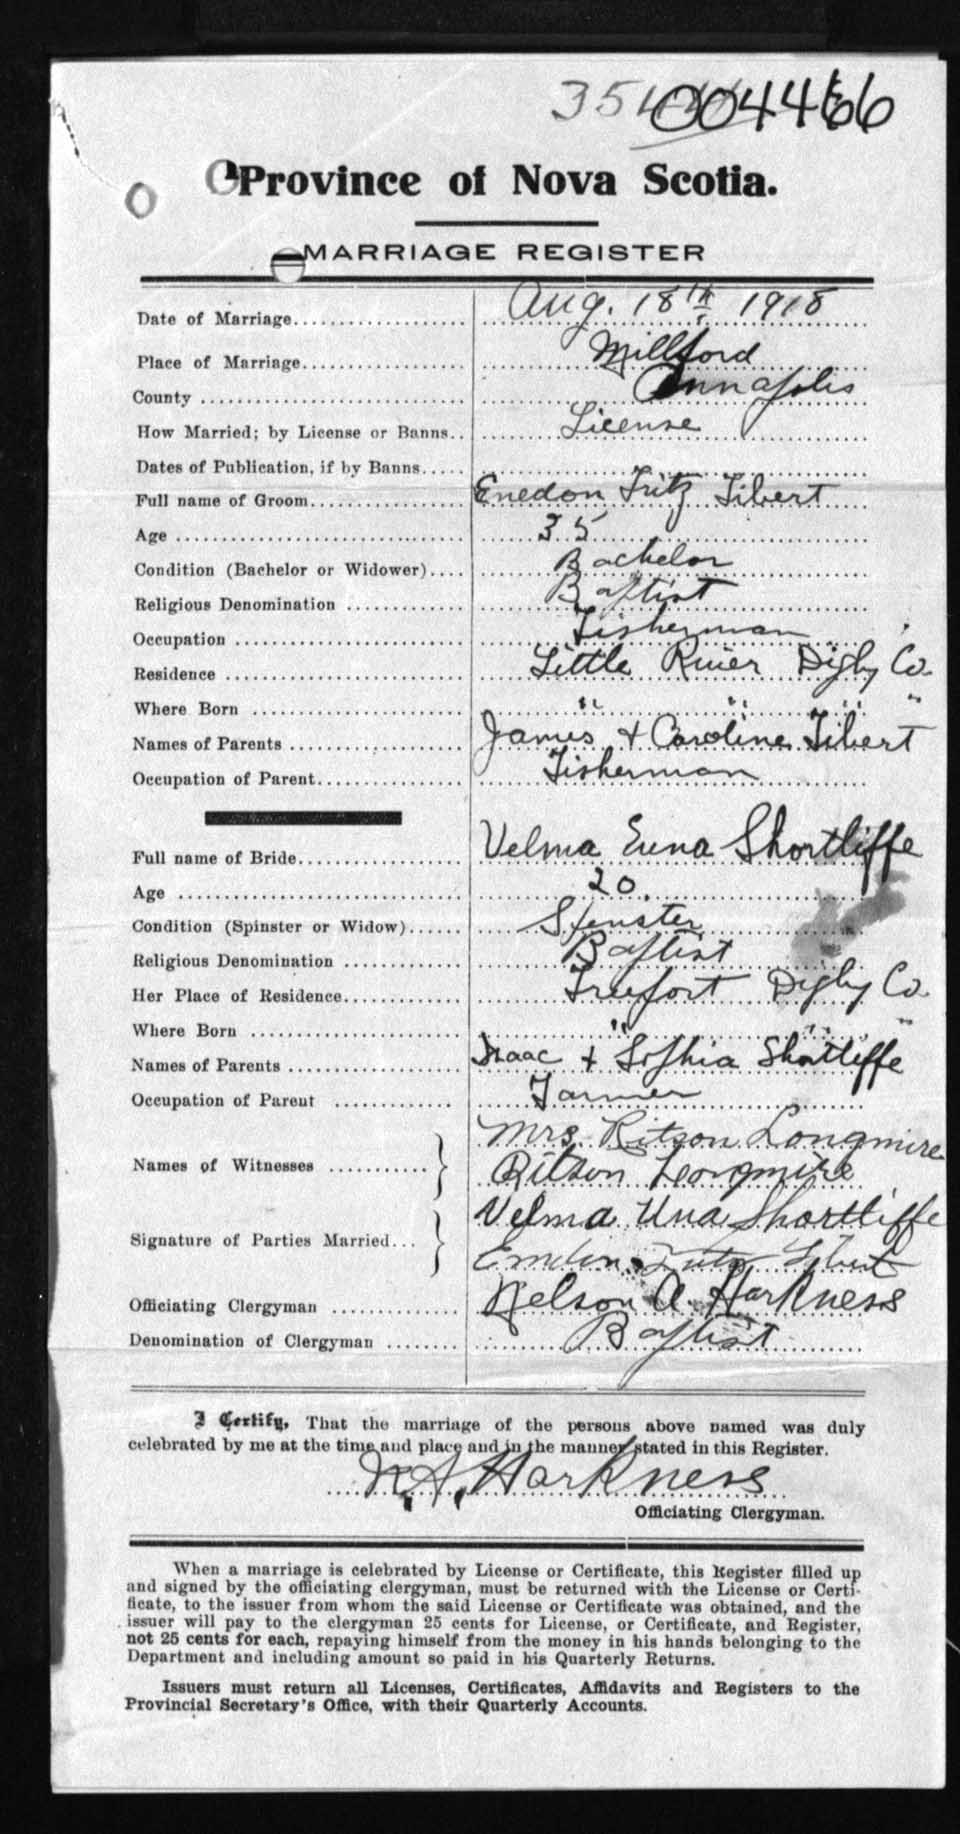 004466
Province of Nova Scotia.
MARRIAGE REGISTER
Date of Marriage Aug. 18th 1918
Place of Marriage Millford
County Annapolis
How Married; by License or Banns License
Dates of Publication, if by Banns
Full name of Groom Enedon Fritz Tibert
Age 35
Condition (Bachelor or Widower) Bachelor
Religious Denomination Baptist
Occupation Fisherman
Residence Little River Digby Co.
Where Born " " " "
Names of Parents James & Caroline Tibert
Occupation of Parent Fisherman
Full name of Bride Velma Euna Shortliffe
Age 20.
Condition (Spinster or Widow) Spinster
Religious Denomination Baptist
Her Place of Residence Freeport Digby Co.
Where Born " " "
Names of Parents Isaac & Sophia Shortliffe
Occupation of Parent Farmer
Mrs. Ritson Longmire
Names of Witnesses Ritson Longmire
Velma Una Shortliffe
Signature of Parties Married Fritz Tibert
Officiating Clergyman Nelson A. Harkness
Denomination of Clergyman Baptist
I Certify, That the marriage of the persons above named was duly
celebrated by me at the time and place and in the manner stated in this Register.
N. A. Harkness
Officiating Clergyman.
When a marriage is celebrated by License or Certificate, this Register filled up
and signed by the officiating clergyman, must be returned with the License or Certi-
ficate, to the issuer from whom the said License or Certificate was obtained, and the
issuer will pay to the clergyman 25 cents for License, or Certificate, and Register,
not 25 cents for each, repaying himself from the money in his hands belonging to the
Department and including amount so paid in his Quarterly Returns.
Issuers must return all Licenses, Certificates, Affidavits and Registers to the
Provincial Secretary's Office, with their Quarterly Accounts.